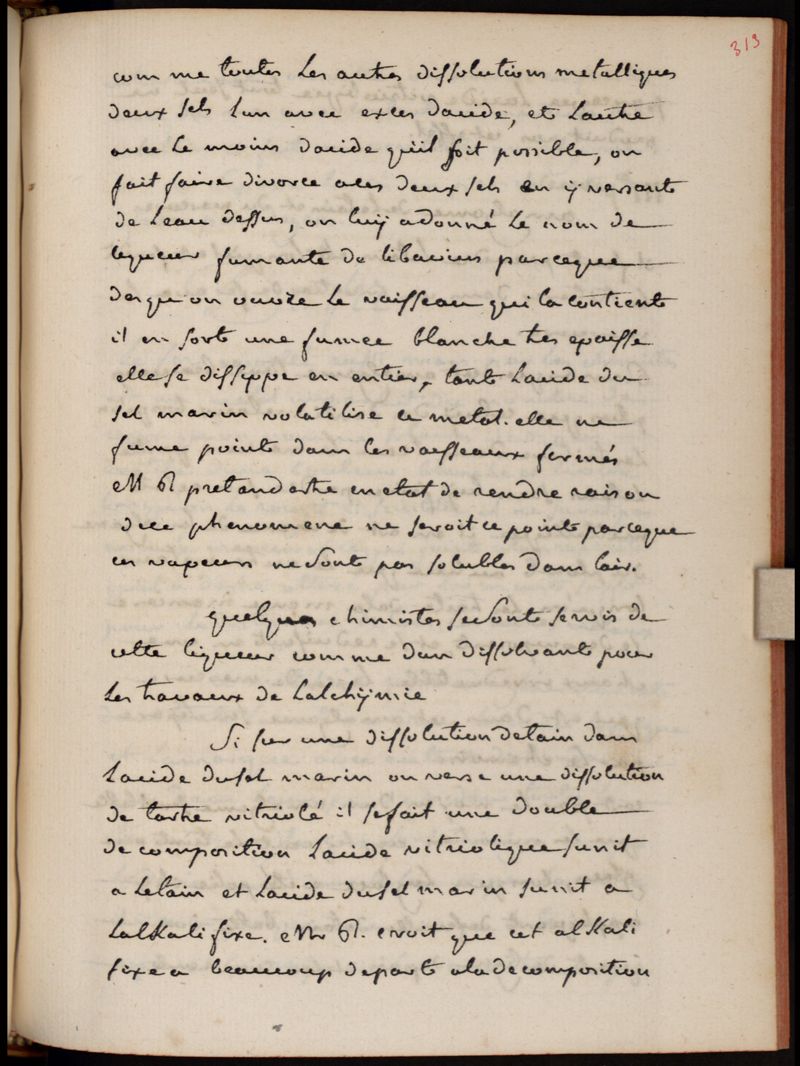 319
com me toutes Les autres dissolutions metalliques
deux sels Lun avec exces dacide, et Lautre
avec Le moins dacide quil soit possible, on
fait faire divorce a ces deux sels en ÿ versant
de Leau dessus, on luÿ a donné Le nom de
liqueur fumante de libavius parceque
des qu on ouvre Le vaisseau qui la contient
il en sort une fumee blanche tres epaisse
elle se dissippe en entier, tant Lacide du
sel marin volatilise ce metal. elle ne
fume point dans les vaisseaux fermés
M R pretand estre en etat de rendre raison
de ce phenomene ne seroit ce point parceque
ces vapeurs ne sont pas solubles dans lair.
quelques chimistes se sont servis de
cette liqueur comme dun dissolvant pour
Les travaux de Lalchÿmie
Si sur une dissolution detain dans
Lacide du sel marin on verse une dissolution
de tartre vitriolé il se fait une double
de composition Lacide vitriolique sunit
a Letain et Lacide du sel marin sunit a
Lalkali fixe. Mr R. croit que cet alkali
fixe a beaucoup de part a la decomposition